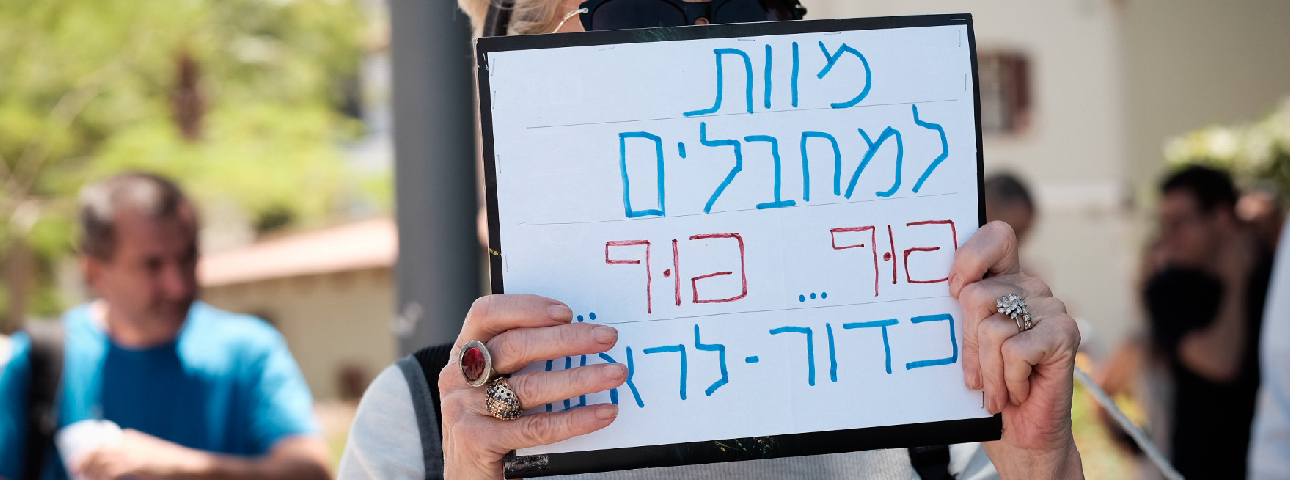 מוות
למחבלים
פוּף ... פוּף ..
כדור-לראש